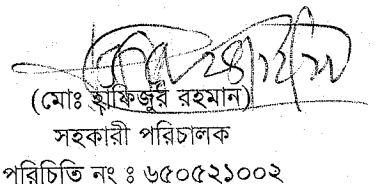 (মোঃ হাফিজুর রহমান)
সহকারী পরিচালক
পরিচিতি নং ঃ ৬৫০৫২১০০২